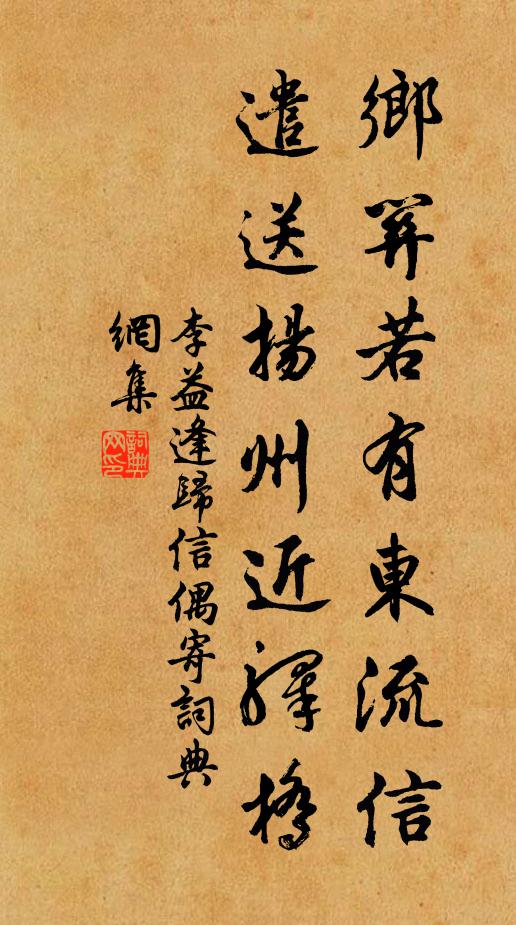 鄉關若有東流信
遣送揚州近驛橋
李益逢歸信偶寄詞典
網集
詞典网印